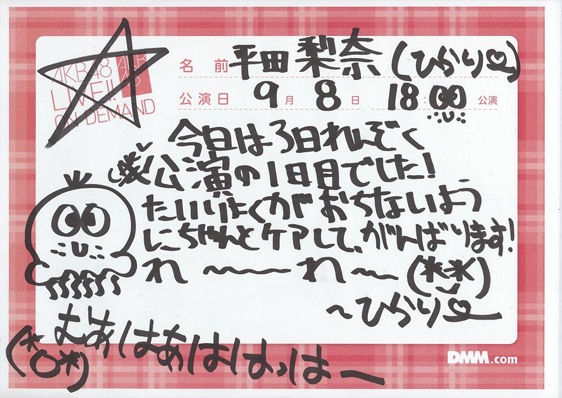 AKB48
LIVE!!
ON DEMAND
名前 平田梨奈(ひかり♡)
公演日 9月8日 18:00 公演
今日は3日れんぞく
公演の1日目でした!
たいりょくがおちないよう
にちゃんとケアして、がんばります!
れ〜〜れ〜(**)
〜ひかり♡
むあはあははっはー
(*O*)
DMM.com